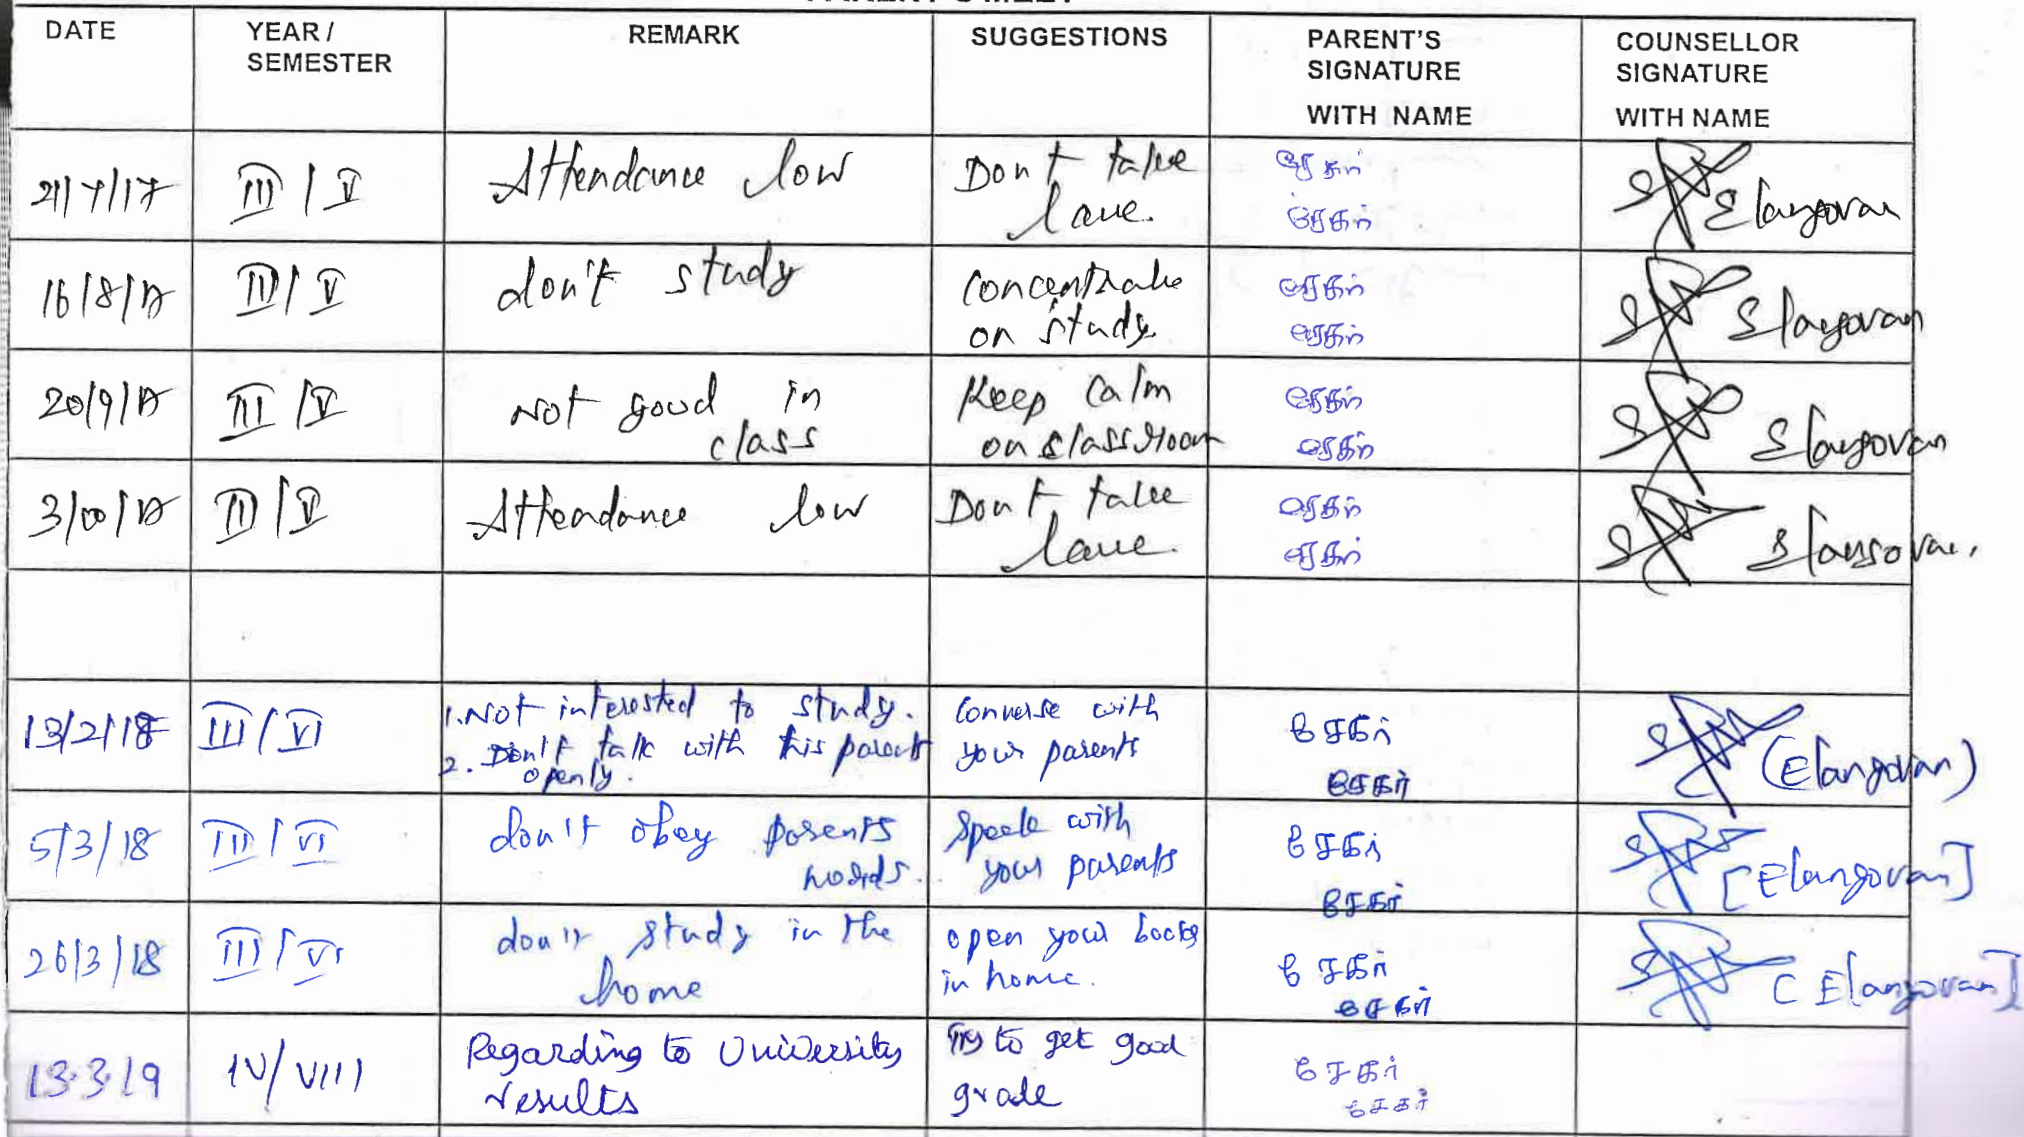 DATE
YEAR /
SEMESTER
REMARK
SUGGESTIONS
PARENT'S
SIGNATURE
WITH NAME
COUNSELLOR
SIGNATURE
WITH NAME
21/7/17
III / V
Attendance low
Don't take
leave.
Elangovan
16/8/17
III / V
don't study
Concentrate
on study.
Elangovan
20/9/17
III / V
Not good in
class
Keep calm
on classroom
Elangovan
3/10/17
III / V
Attendance low
Don't take
leave.
Elangovan
13/2/18
III / VI
1. Not interested to study.
2. Don't talk with his parents
openly.
Converse with
your parents
சேகர்
சேகர்
(Elangovan)
5/3/18
III / VI
don't obey parents
words.
Speak with
your parents
சேகர்
சேகர்
[Elangovan]
26/3/18
III / VI
don't study in the
home
open your books
in home.
சேகர்
சேகர்
[Elangovan]
13.3.19
IV / VIII
Regarding to University
results
Try to get good
grade
சேகர்
சேகர்